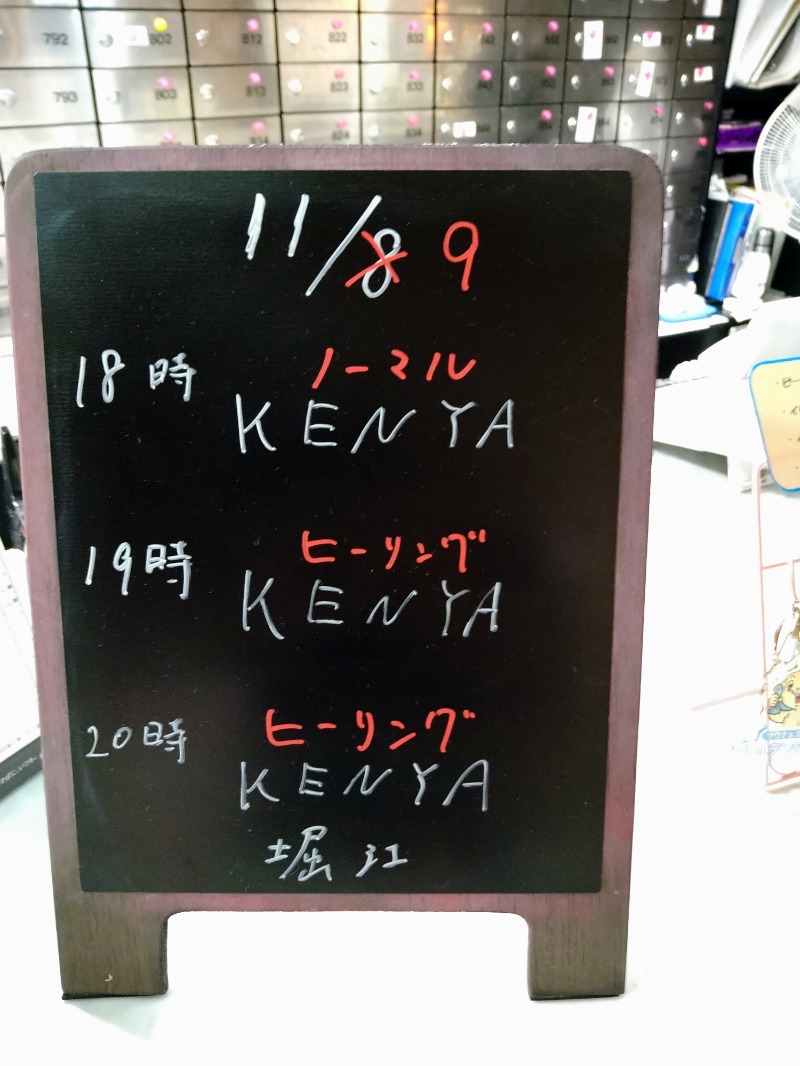 792
802
812
822
832
793
803
813
823
833
824
834
11/8 9
18時 ノーマル
KENYA
19時 ヒーリング
KENYA
20時 ヒーリング
KENYA
堀江